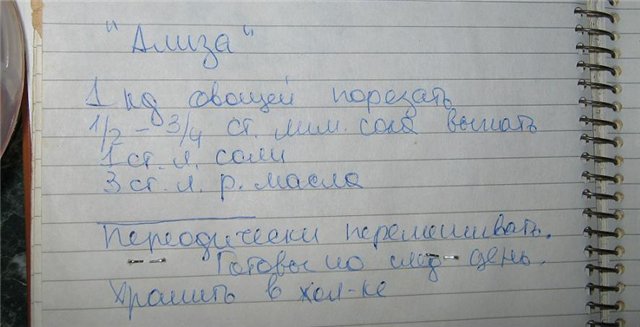 "Ализа"
1 кг овощей порезать
1/2 - 3/4 ст. лим. сока выжать
1 ст. л. соли
3 ст. л. р. масла
Переодически перемешивать.
Готовы на след- день.
Хранить в хол-ке